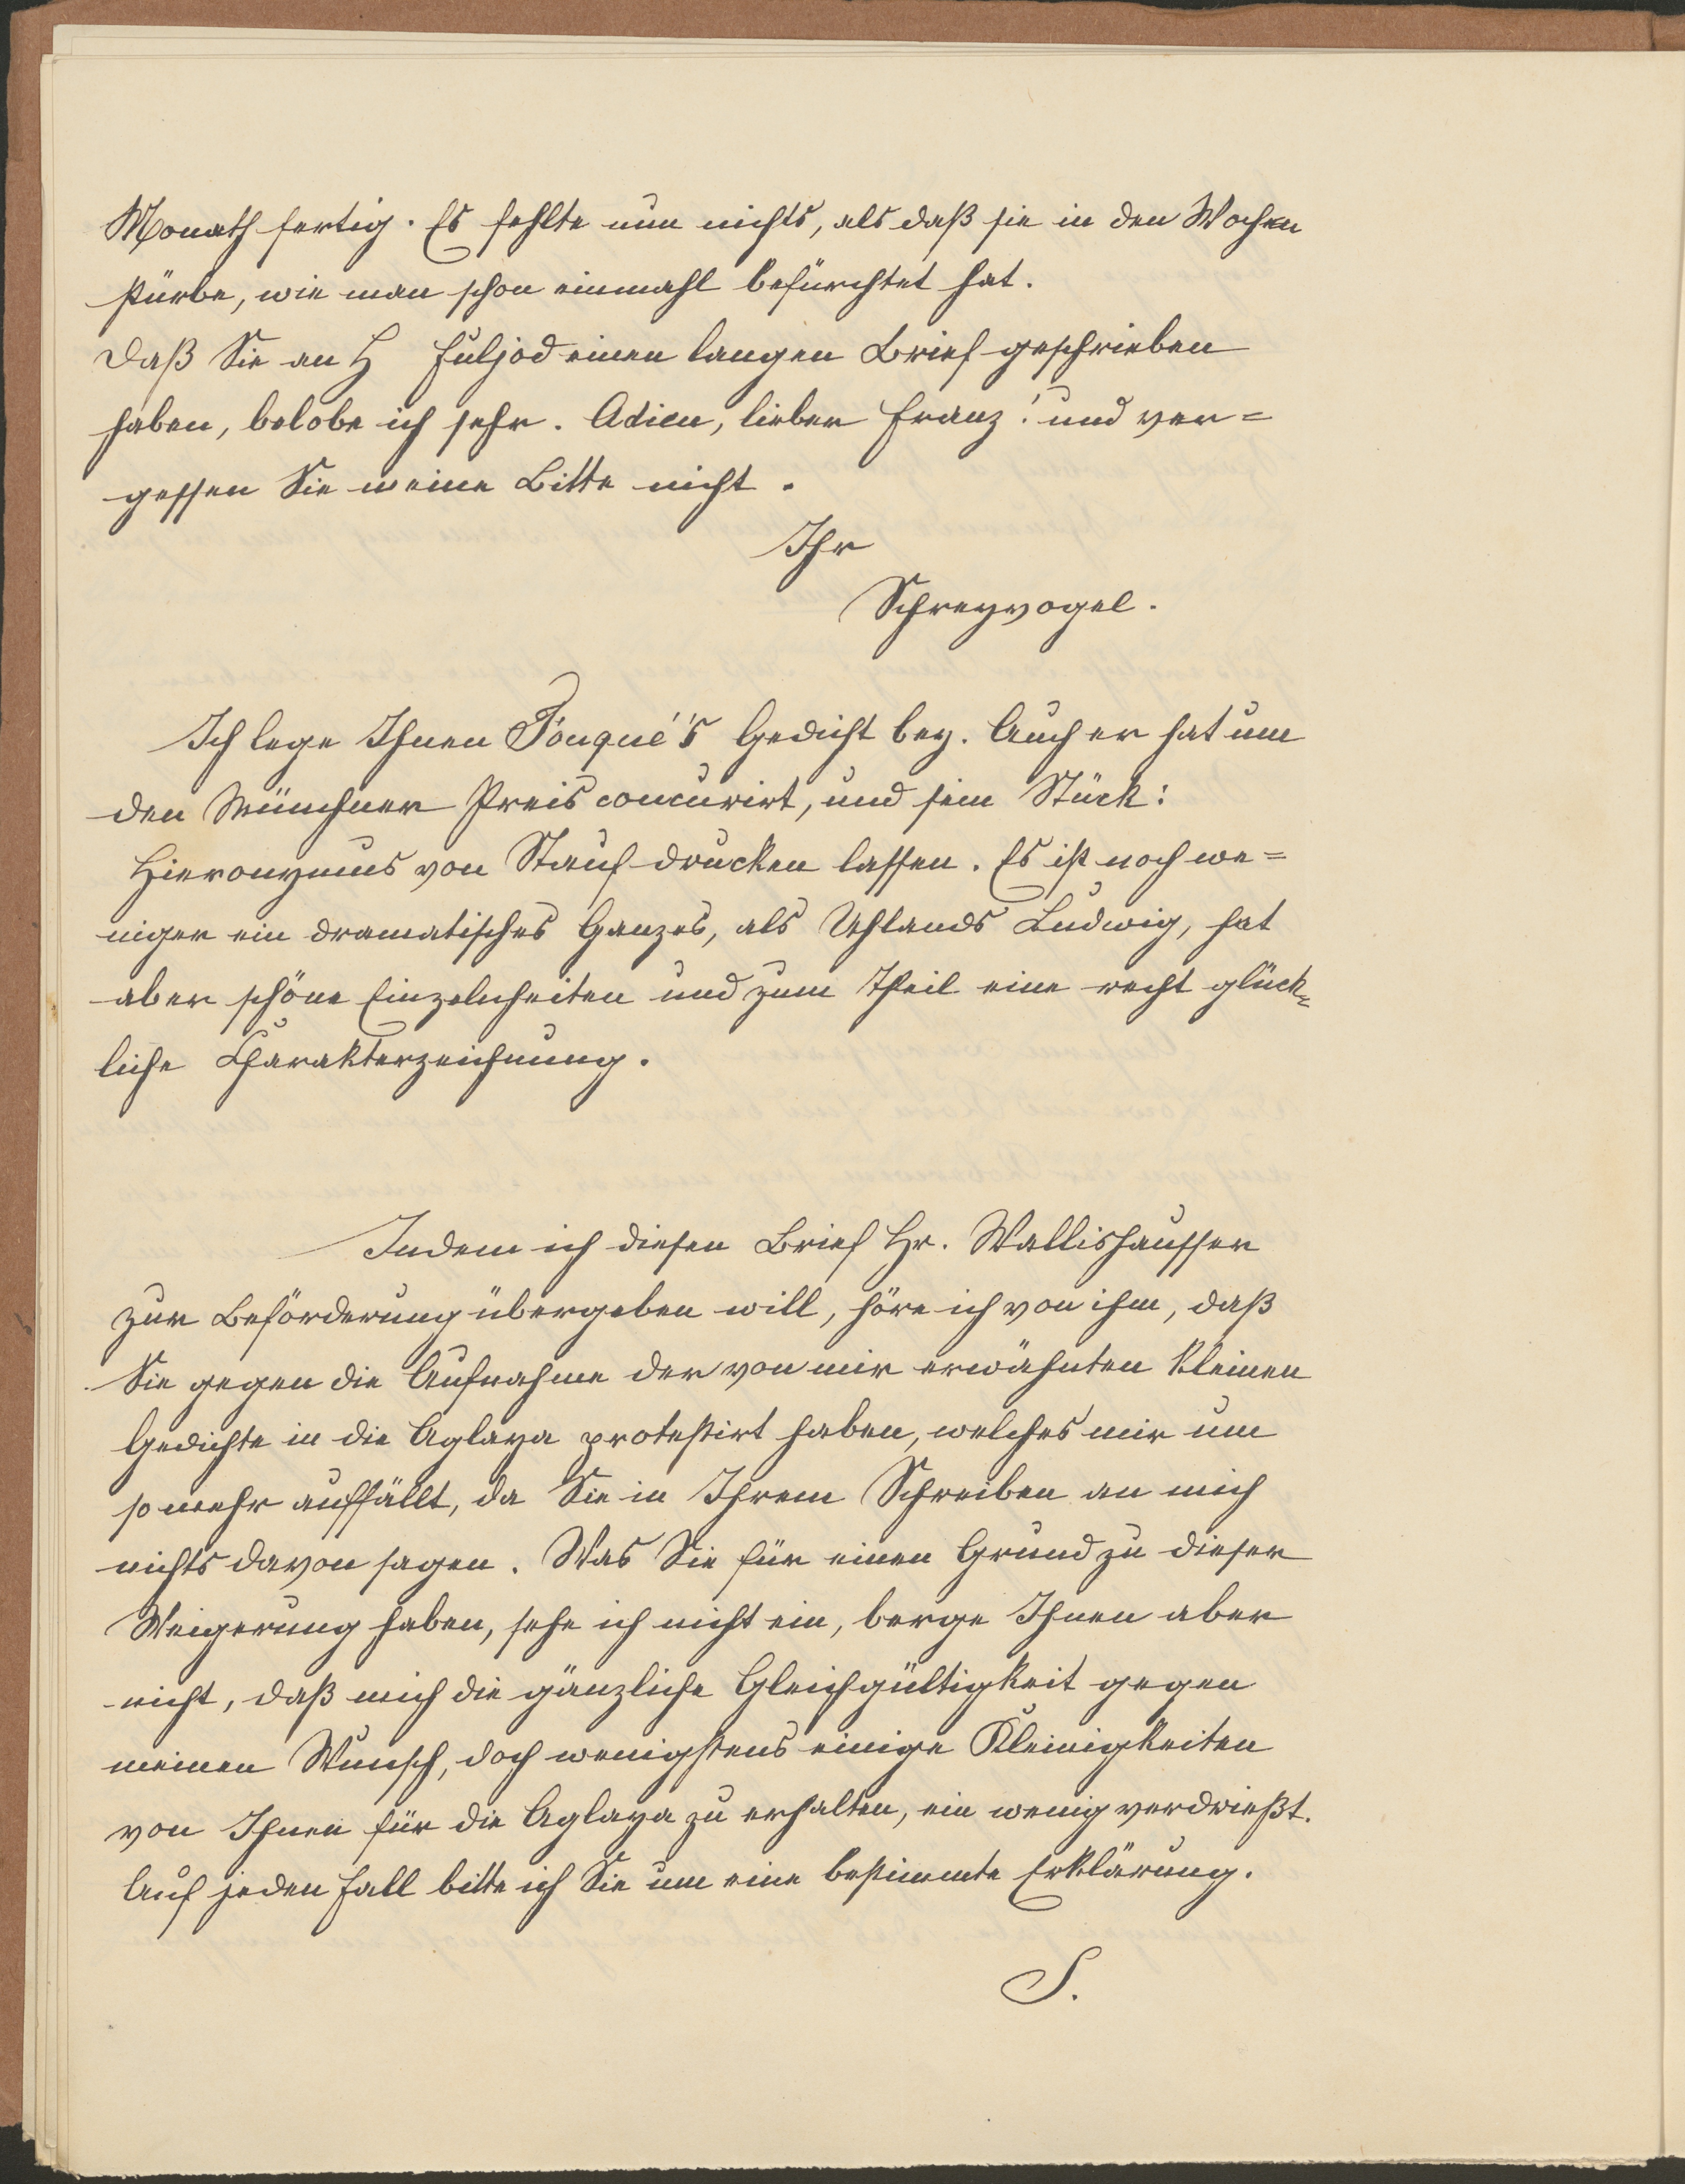 Monath fertig. Es fehlte nun nichts, als daß sie in den Wochen
stürbe, wie man schon einmahl befürchtet hat.
Daß Sie an H Fuljod einen langen Brief geschrieben
haben, belobe ich sehr. Adieu, lieber Franz! und ver=
gessen Sie meine Bitte nicht.
Ihr
Schreyvogel.
Ich lege Ihnen Fouqué's Gedicht bey. Auch er hat um
den Münchner Preis concurirt, und sein Stück:
Hieronymus von Stauf drucken lassen. Es ist noch we=
niger ein dramatisches Ganzes, als Uhlands Ludwig, hat
aber schöne Einzelnheiten und zum Theil eine recht glück=
liche Charakterzeichnung.
Indem ich diesen Brief Hr. Wallishausser
zur Beförderung übergeben will, höre ich von ihm, daß
Sie gegen die Aufnahme der von mir erwähnten kleinen
Gedichte in die Aglaya protestirt haben, welches mir um
so mehr auffällt, da Sie in Ihrem Schreiben an mich
nichts davon sagen. Was Sie für einen Grund zu dieser
Weigerung haben, sehe ich nicht ein, berge Ihnen aber
nicht, daß mich die gänzliche Gleichgültigkeit gegen
meinen Wunsch, doch wenigstens einige Kleinigkeiten
von Ihnen für die Aglaya zu erhalten, ein wenig verdrießt.
Auf jeden Fall bitte ich Sie um eine bestimmte Erklärung.
S.